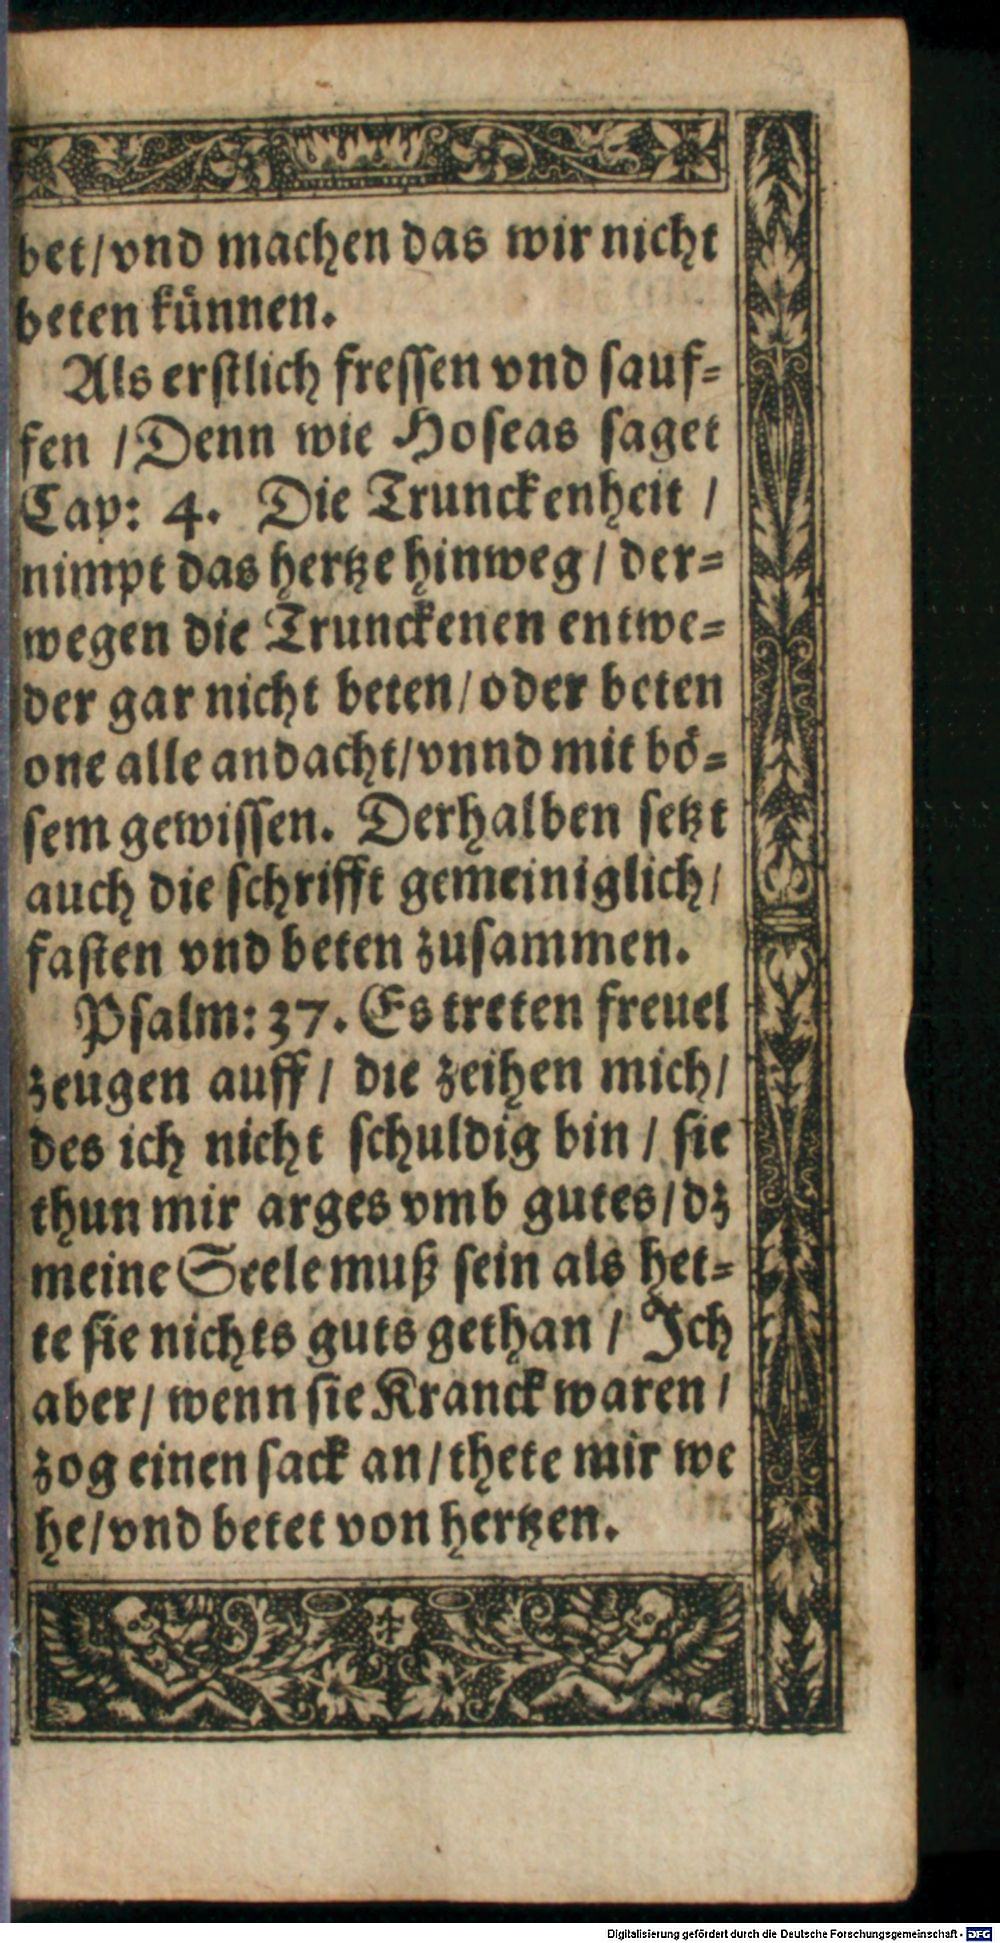 bet/vnd machen das wir nicht
beten künnen.
Als erstlich fressen vnd sauf-
fen /Denn wie Hoseas saget
Cap: 4. Die Trunckenheit /
nimpt das hertze hinweg / der-
wegen die Trunckenen entwe-
der gar nicht beten/oder beten
one alle andacht/vnnd mit bö-
sem gewissen. Derhalben setzt
auch die schrifft gemeiniglich/
fasten vnd beten zusammen.
Psalm: 37. Es treten freuel
zeugen auff / die zeihen mich/
des ich nicht schuldig bin / sie
thun mir arges vmb gutes/dz
meine Seele muß sein als het-
te sie nichts guts gethan / Ich
aber/ wenn sie Kranck waren /
zog einen sack an/thete mir we
he/vnd betet von hertzen.
Digitalisierung gefördert durch die Deutsche Forschungsgemeinschaft - DFG